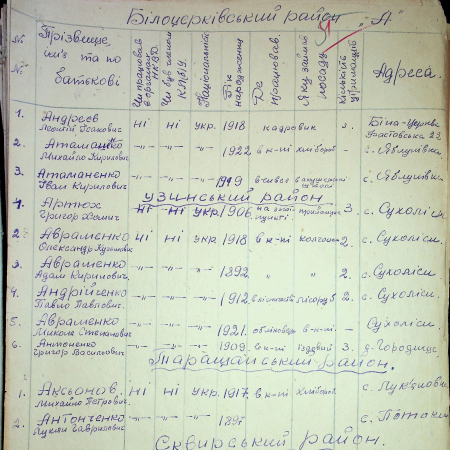 Білоцерківський район "А"
№ № Прізвище, ім'я та по батькові Чи працював в органах НКВД. Чи був членом КП/б/У. Національність Рік народження Де працював. Яку займав посаду Кількість Адреса.
1. Андреєв Леонтій Ісакович ні ні укр. 1918 кадровик 2. Біла-Церква
2. Михайло Кирилович 1922 в к-пі хлібороб - с. Яблунівка
3. Атаманенко Іван Кирилович 1919 с. Яблунівка
Узинський район
1. Артюх Григор ні ні укр. 1906 3. с. Сухоліси.
2. Авраменко Олександр ні ні укр 1918 в к-пі 2. с. Сухоліси.
3. Авраменко Адам Кирилович 1892 " " 2. с. Сухоліси.
4. Андрійченко Павло Павлович. 1912 2. с. Сухоліси.
5. Авраменко Микола Степанович 1921. обліковець в к-пі - Сухоліси
6. Антоненко Григор Васильович 1909. в к-пі їздовий 3. Городище
Таращанський район.
1. Аксьонов Михайло Петрович. ні ні укр. 1917. в к-пі хлібороб с. Лук'янівка
2. Антонченко Лукіян Гаврилович 1897 с. Потоки
Сквирський район.